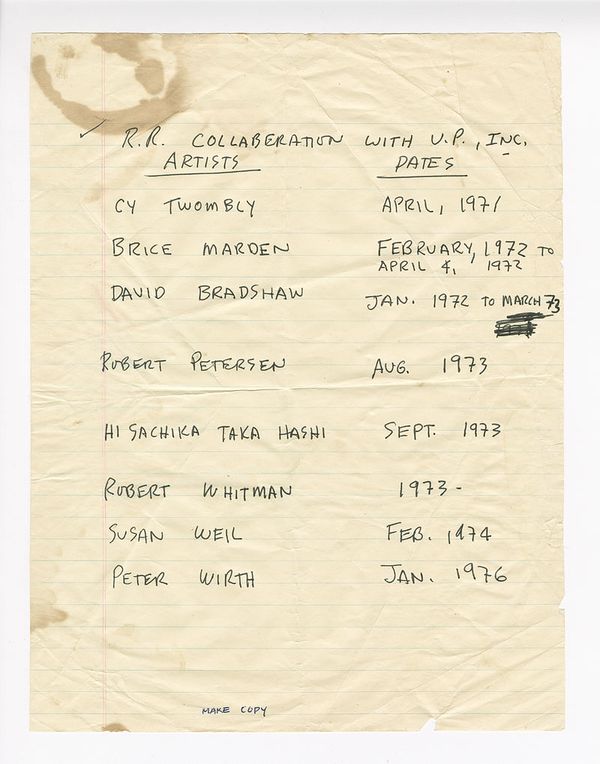 ✓ R.R. COLLABERATION WITH U.P., INC.
ARTISTS DATES
CY TWOMBLY APRIL, 1971
BRICE MARDEN FEBRUARY, 1972 TO
APRIL 4, 1972
DAVID BRADSHAW JAN. 1972 TO MARCH 73
ROBERT PETERSEN AUG. 1973
HI SACHIKA TAKA HASHI SEPT. 1973
ROBERT WHITMAN 1973-
SUSAN WEIL FEB. 1974
PETER WIRTH JAN. 1976
MAKE COPY